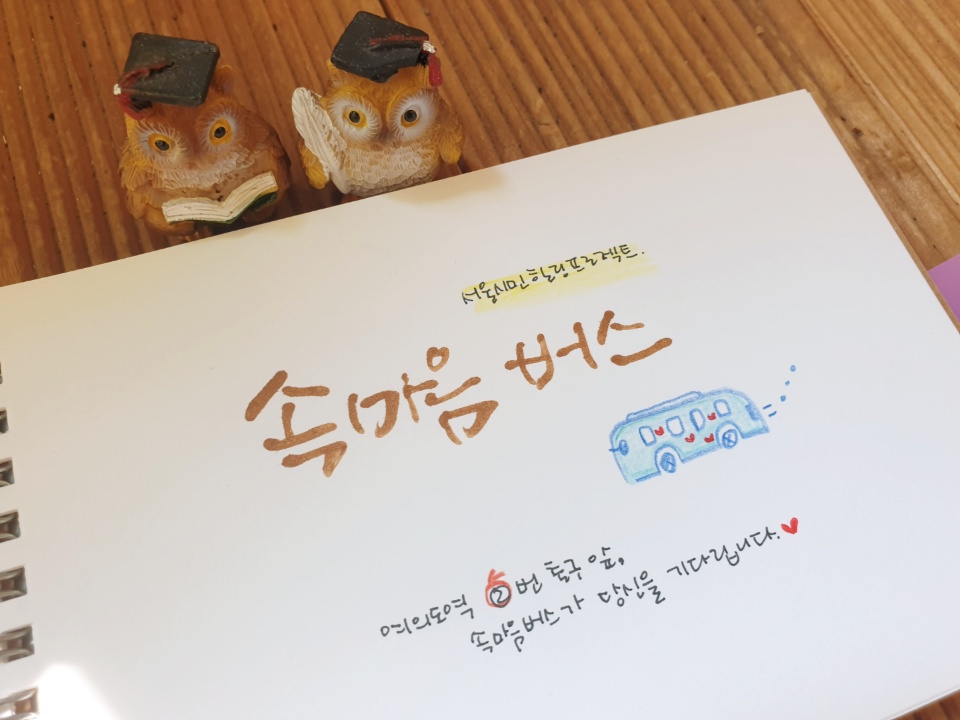 서울시민힐링프로젝트.
속마음 버스
여의도역 ②번 출구 앞,
속마음버스가 당신을 기다립니다.♥